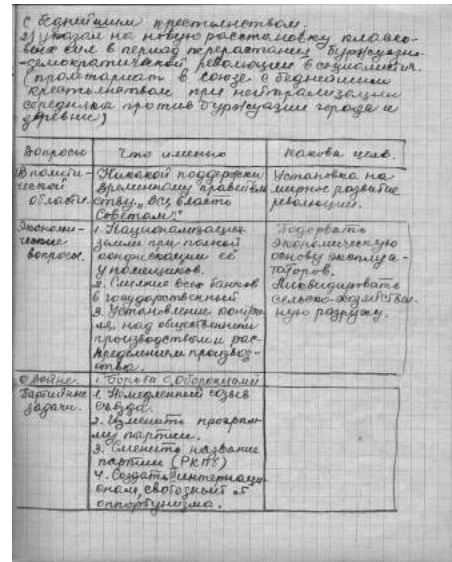 с беднейшим крестьянством.
2) указал на новую расстановку классо-
вых сил в период перерастания буржуазно-
-демократической революции в социалистич.
(пролетариат в союзе с беднейшим
крестьянством при нейтрализации
середняка против буржуазии города и
деревни)
Вопросы Что именно Какова цель.
В полити-
ческой
области.
Никакой поддержки
временному правитель
ству, "Вся власть
Советам!"
Установка на
мирное развитие
революции.
Экономи-
ческие
вопросы.
1. Национализация
земли при полной
конфискации её
у помещиков.
2. Слияние всех банков
в государственный
3. Установление контро
ля, над общественным
производством и рас-
пределением производ-
ства.
Подорвать
экономическую
основу эксплуа-
таторов.
Ликвидировать
сельско-хозяйствен
ную разруху.
О войне. 1. Борьба с оборонцами
Партийные
задачи.
1. Немедленный созыв
съезда.
2. Изменить програм-
му партии.
3. Сменить название
партии (РКПб)
4. Создать интернаци-
онал, свободный от
оппортунизма.